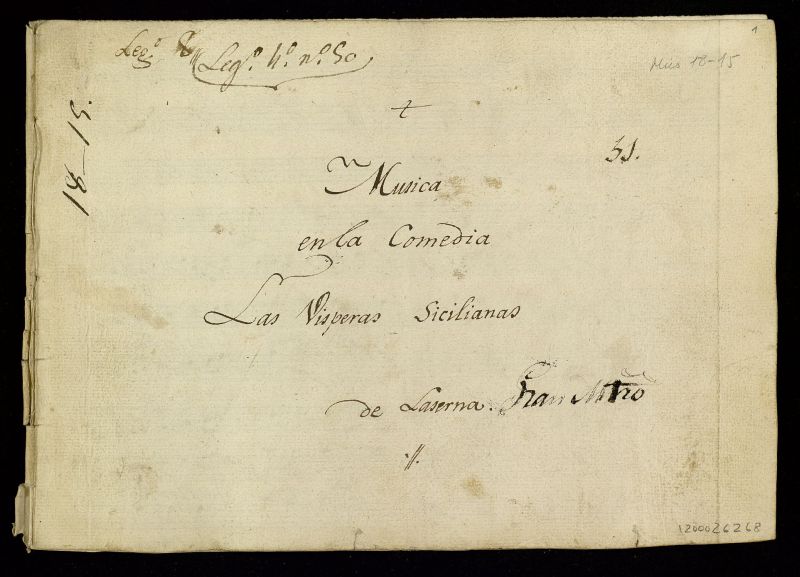 1
Leg.º
Leg.º 4.º n.º 50
Mús 18-15
18-15.
51.
Musica
en la Comedia
Las Visperas Sicilianas
de Laserna. Gran Mtro
1200026268